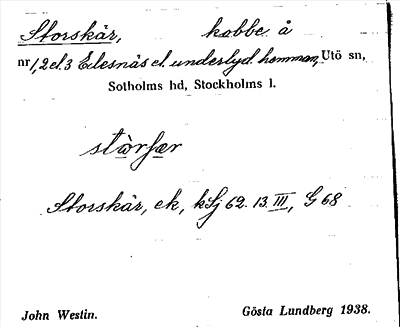 Storskär, kobbe å
nr 1, 2 el. 3 Elesnäs el. underlyd. hemman, Utö sn,
Sotholms hd, Stockholms l.
stòrʃær
Storskär, ek, kSj 62. 13. III, G 68
John Westin. Gösta Lundberg 1938.